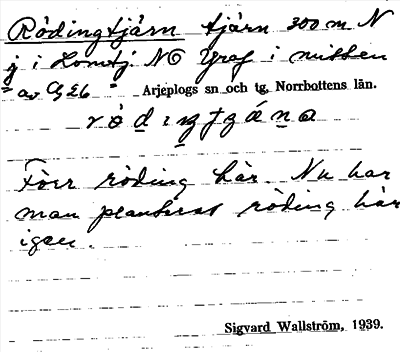 Rödingtjärn tjärn 300 m N
j i Lomtj. NO Graf i mitten
av G 26 Arjeplogs sn och tg, Norrbottens län.
Förr röding här. Nu har
man planterat röding här
igen.
Sigvard Wallström, 1939.